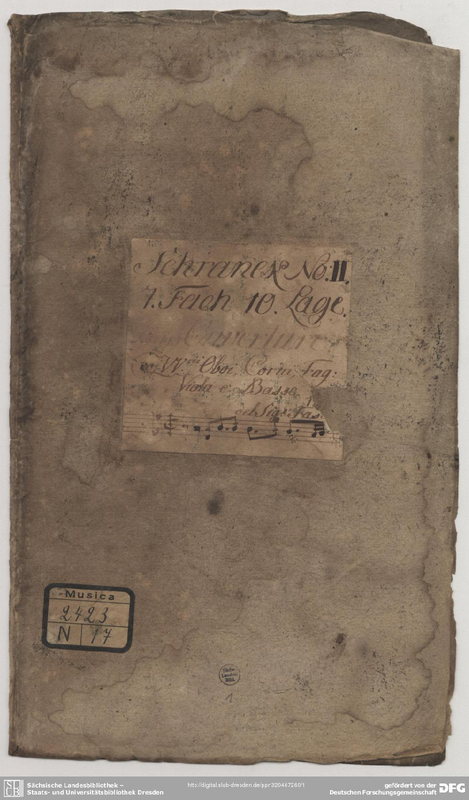 Schranck No: II.
7. Fach 10. Lage.
Ouverture
VVni Oboi, Corni, Fag:
Viola e Basso.
del Sigr. Fas
Musica
2423
N | 17
1
Sächsische Landesbibliothek –
Staats- und Universitätsbibliothek Dresden
gefördert von der
Deutschen Forschungsgemeinschaft DFG